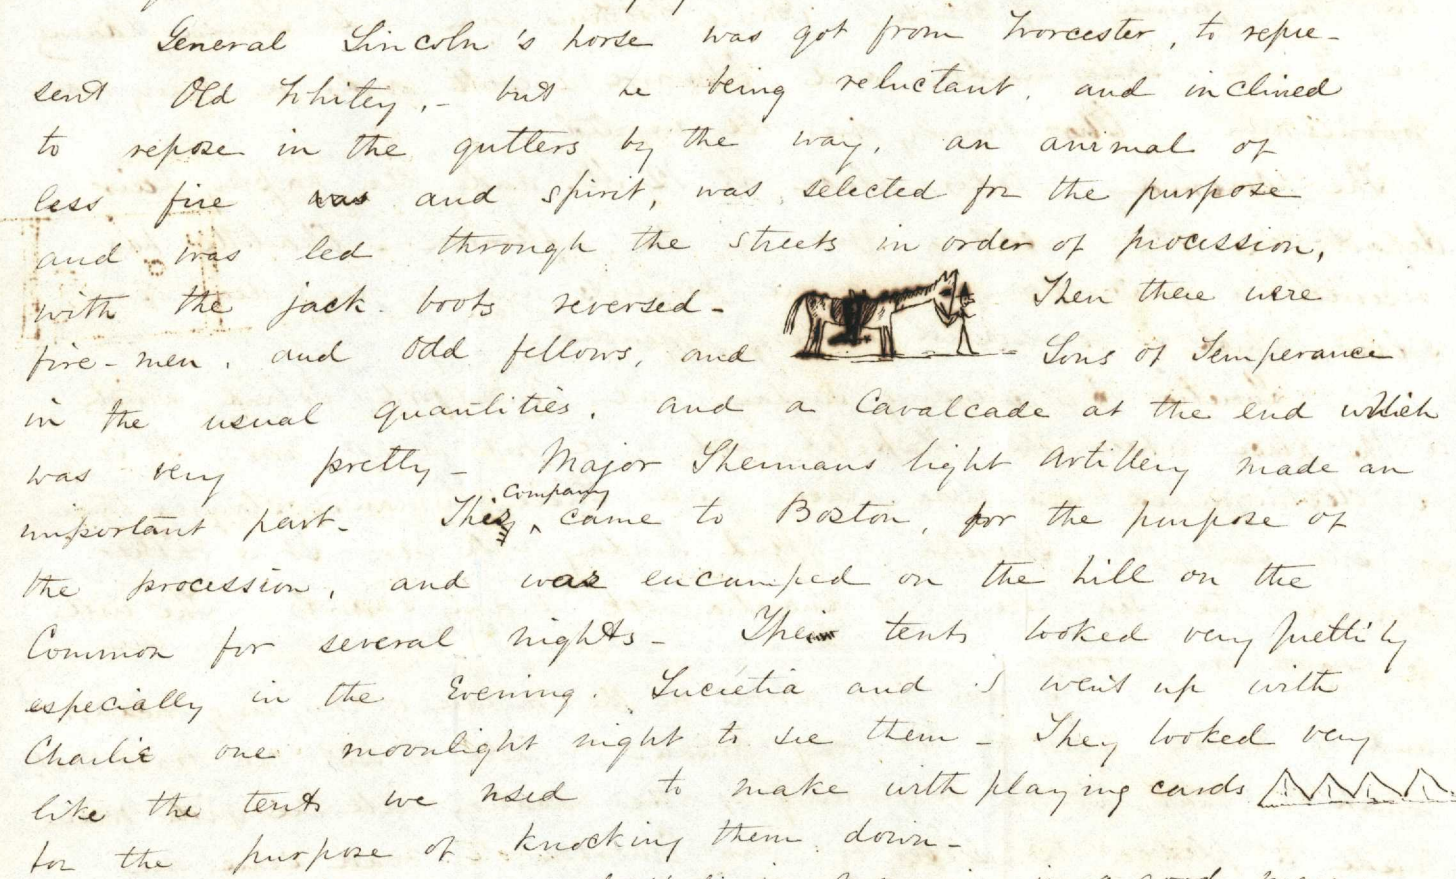 General Lincoln's horse was got from Worcester, to repre-
sent Old Whitey, - but he being reluctant, and inclined
to repose in the gutters by the way, an animal of
less fire was and spirit, was selected for the purpose
and was led through the streets in order of procession,
with the jack boots reversed - Then there were
fire-men, and Odd fellows, and Sons of Temperance
in the usual quantities, and a Cavalcade at the end which
was very pretty - Major Shermans light Artillery made an
important part. This Company came to Boston, for the purpose of
the procession, and was encamped on the hill on the
Common for several nights - Their tents looked very prettily
especially in the Evening. Lucretia and I went up with
Charlie one moonlight night to see them - They looked very
like the tents we used to make with playing cards
for the purpose of knocking them down -